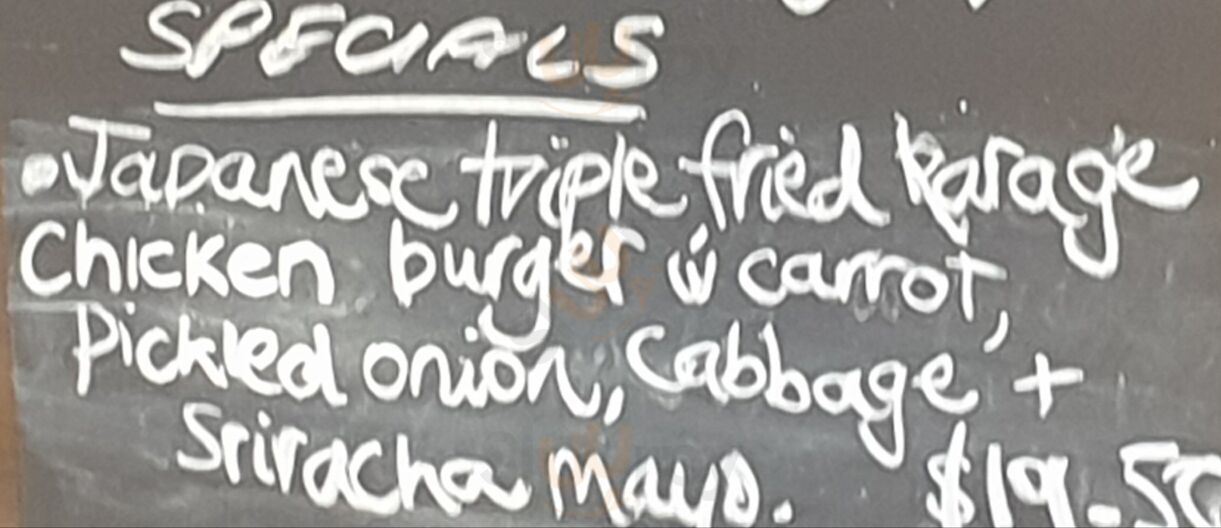 SPECIALS
• Japanese triple fried Karage
Chicken burger w carrot,
Pickled onion, Cabbage +
Sriracha mayo. $19.50